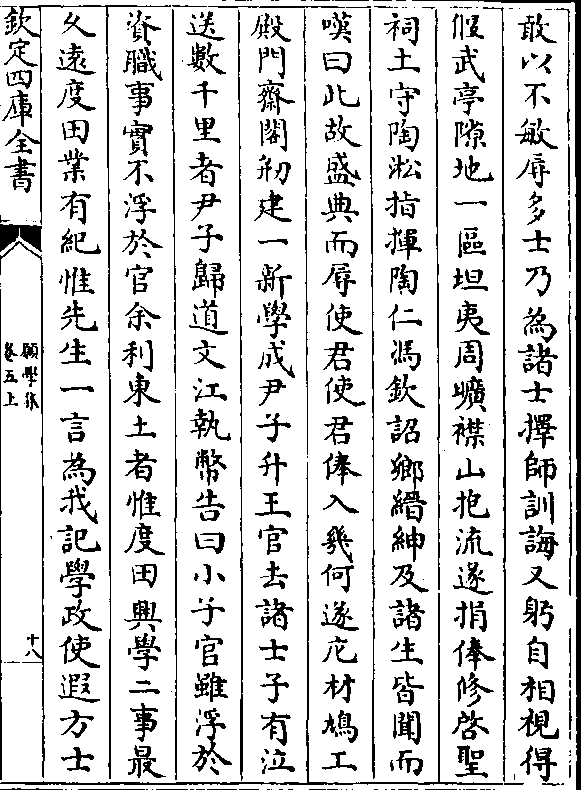 敢以不敏辱多士乃為諸士擇師訓誨又躬自相視得
假武亭隙地一區坦夷周曠襟山抱流遂捐俸修啓聖
祠土守陶淞指揮陶仁馮欽詔鄉縉紳及諸生皆聞而
嘆曰此故盛典而辱使君使君俸入幾何遂庀材鳩工
殿門齋閣刱建一新學成尹子升王官去諸士子有泣
送數千里者尹子歸道文江執幣告曰小子官雖浮於
資職事實不浮於官余利東土者惟度田興學二事最
久遠度田業有紀惟先生一言為我記學政使遐方士
欽定四庫全書
願學集
卷五上
十八